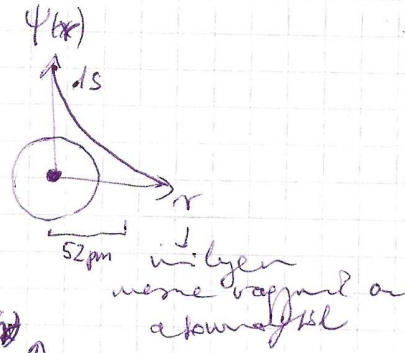 ψ(r)
1s
r
52pm
milyen
messze vagyunk az
atommagtól